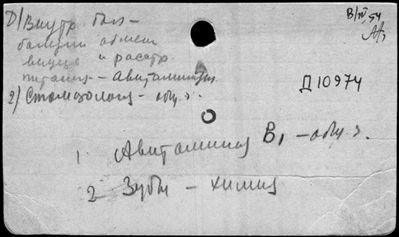 1) Внутр бол-
болезни обмен
веществ и расстр
питания - Авитаминозы
2) Стоматология - общ. э.
В/IV 54
Д 10974
1 Авитаминоз B₁ - общ. э.
2 Зубы - химия